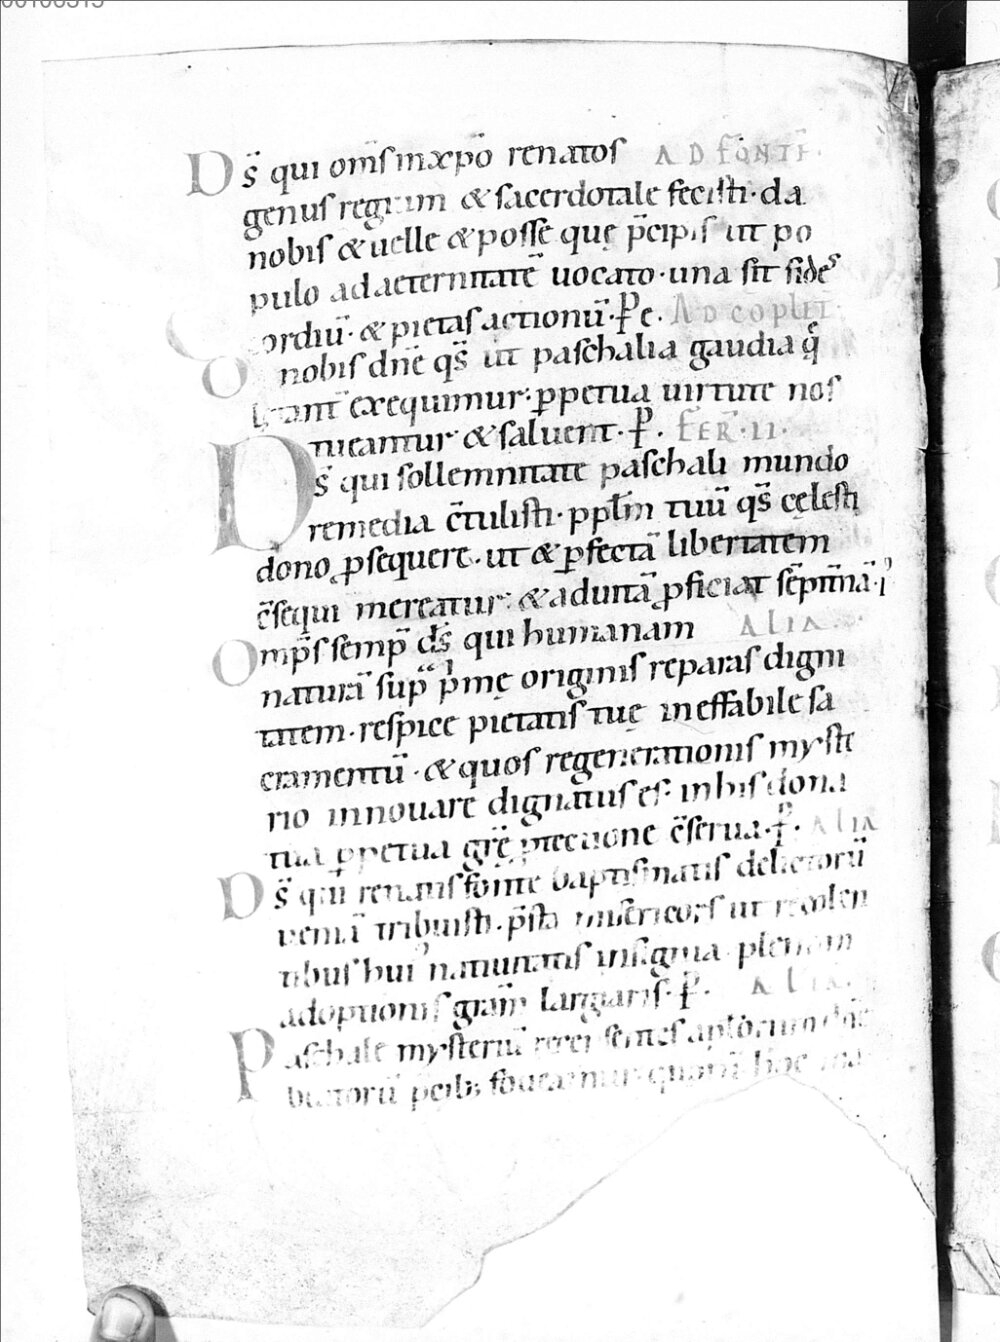 00106313
Ds̄ qui om̄s in xp̄o renatos AD FONTE.
genus regium & sacerdotale fecisti · da
nobis & uelle & posse que p̄cipis ut po
pulo ad aeternitatē uocato · una sit fides
cordiū · & pietas actionū · P̄e. AD COPLET
nobis dn̄e qs̄ ut paschalia gaudia q̄
exequimur · ꝑpetua uirtute nos
tueantur & saluent · P̄. FER · II ·
Ds̄ qui sollemnitate paschali mundo
remedia c̄tulisti · ppl̄m tuū qs̄ cęlesti
dono ꝓsequere · ut & ꝑfectā libertatem
c̄sequi mereatur · & ad uitā ꝓficiat sēpitnā ·
Omp̄s semp̄ ds̄ qui humanam ALIA
naturā sup̄ p̄mę originis reparas digni
tatem · respice pietatis tuę ineffabile sa
cramentū · & quos regenerationis myste
rio innouare dignatus es · in his dona
tua ꝑpetua grę̄ ꝓtectione c̄serua · P̄. ALIA
Ds̄ qui renatis fonte baptismatis delictorū
ueniā tribuisti · p̄sta misericors ut recolen
tibus hui' natiuitatis insignia plenam
adoptionis gram̄ largiaris · P̄. ALIA.
Paschale mysteriū
p̄cib; foueamur